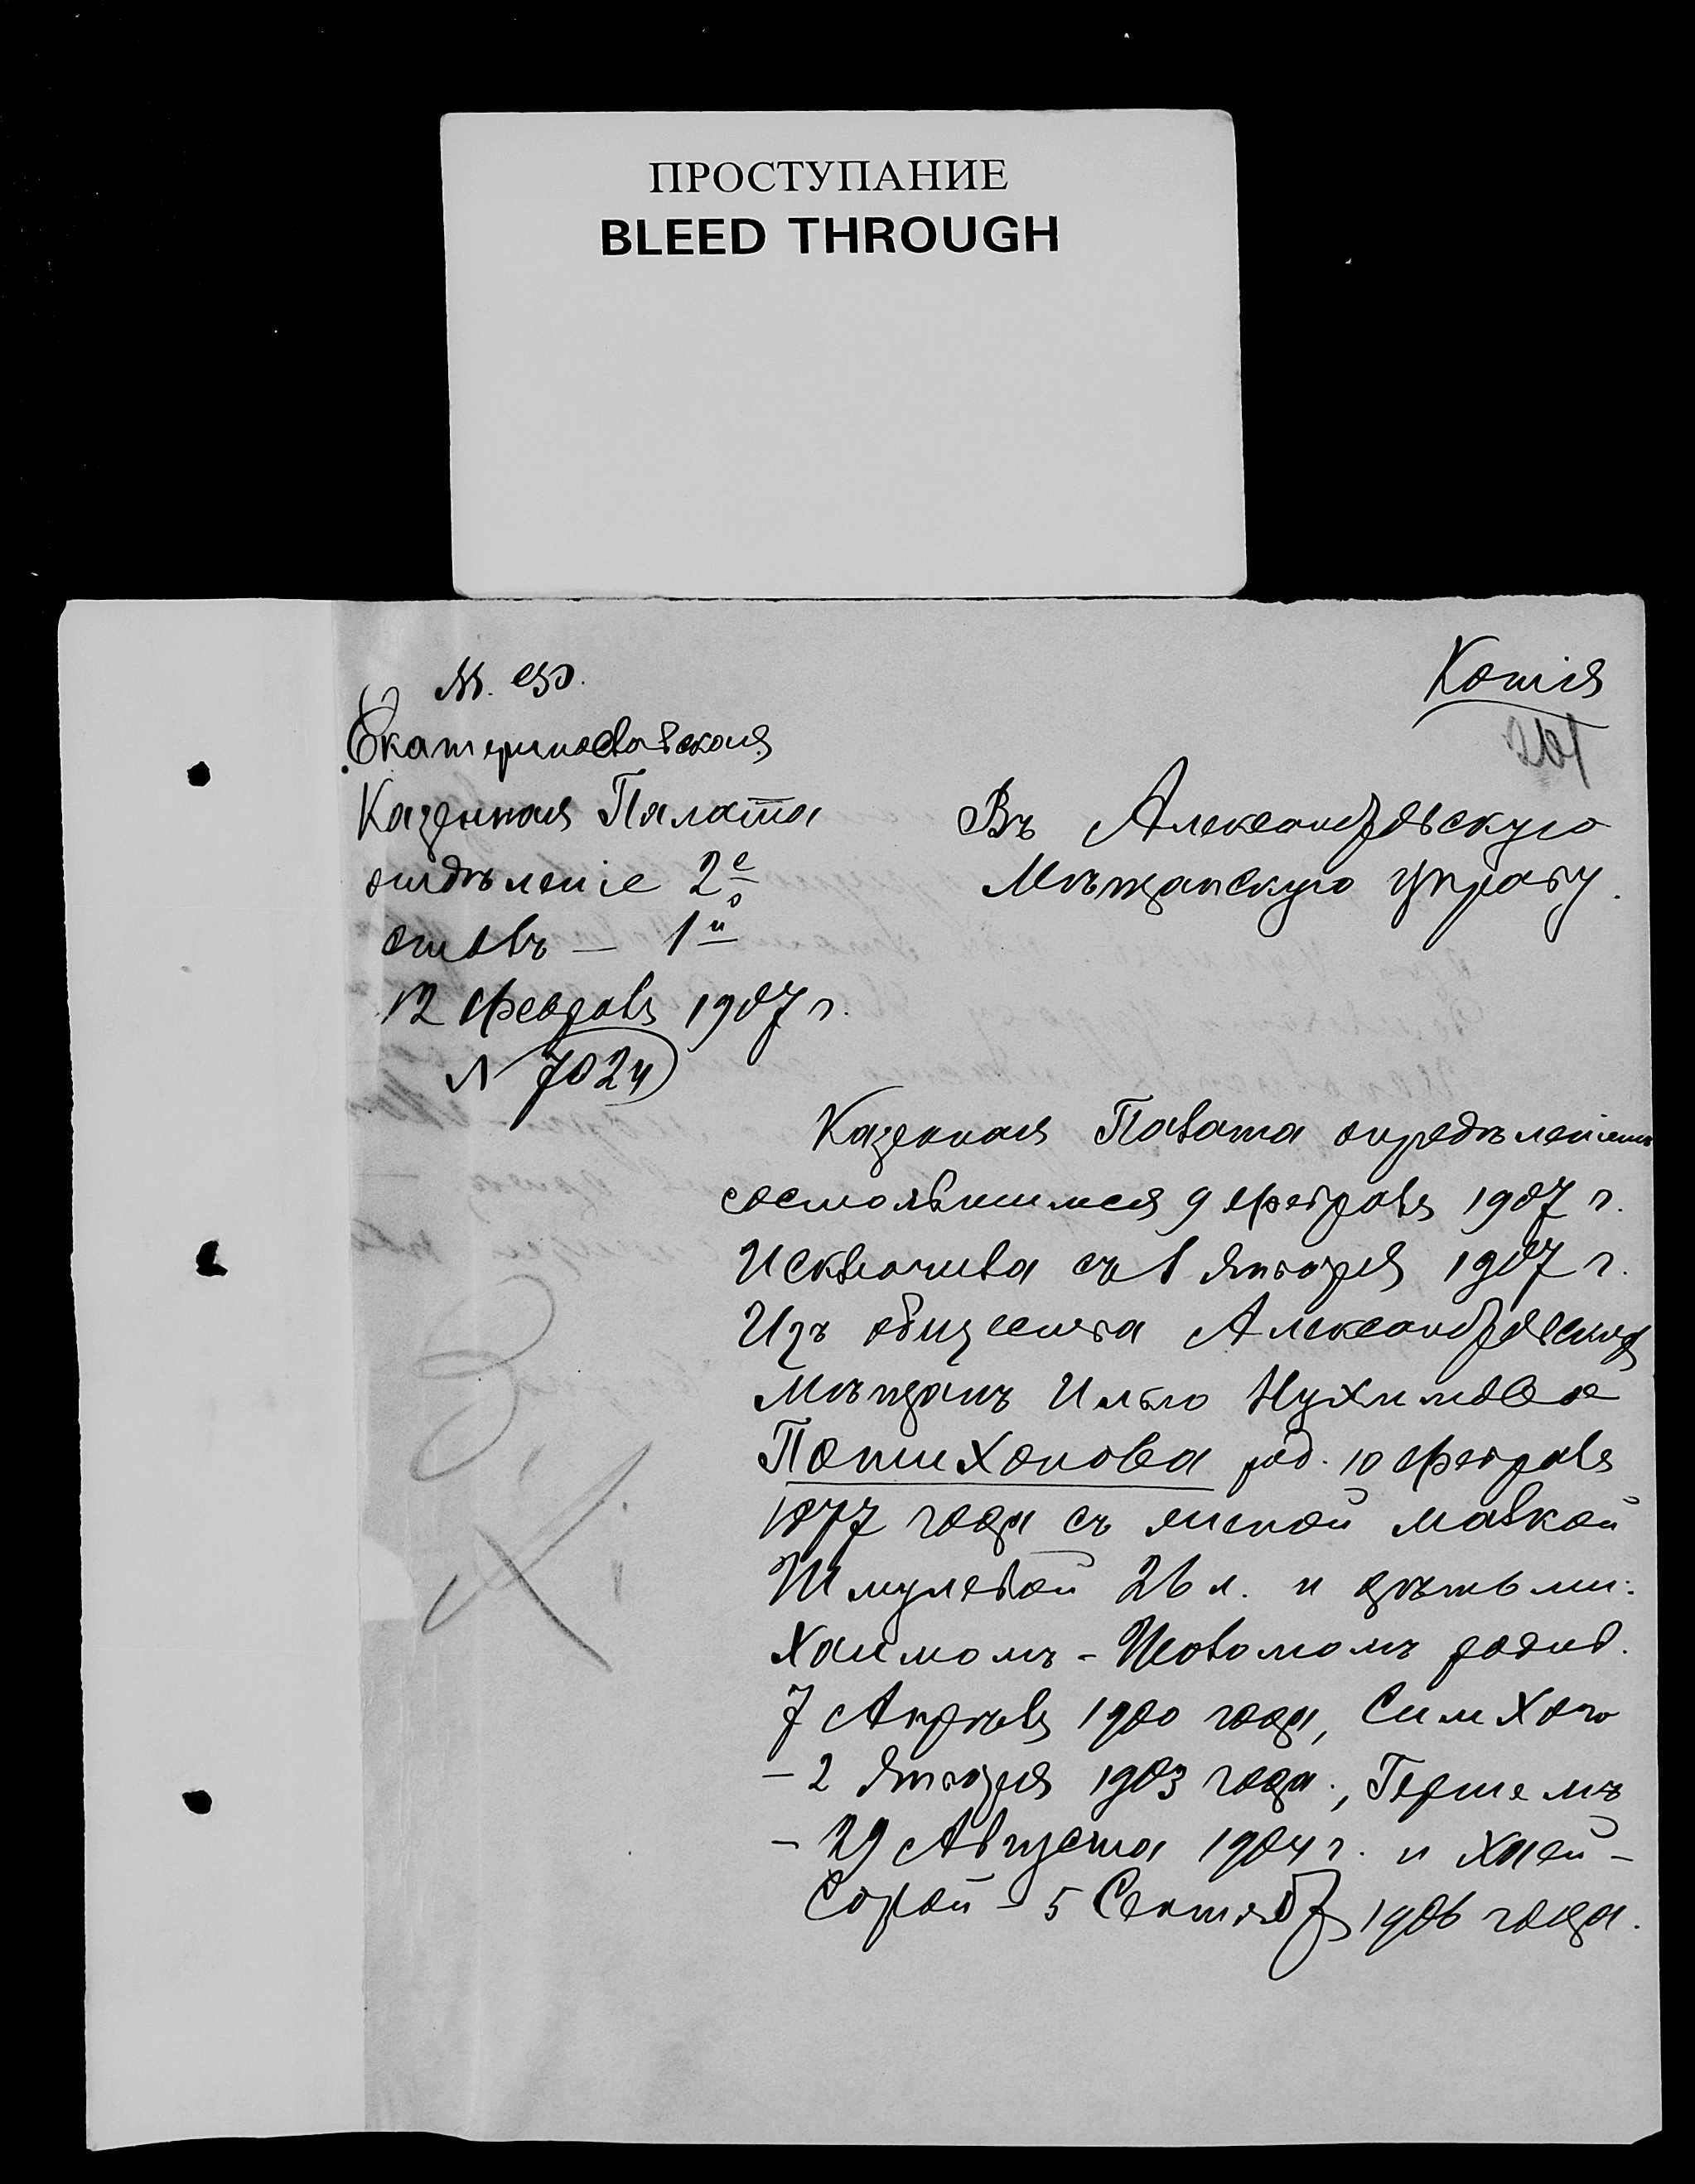 ПРОСТУПАНИЕ
BLEED THROUGH
Копія
М. Ф.
Екатеринославская
Казенная Палата
отдѣленіе 2е
столъ — 1й
12 Февраля 1907 г.
N 7024
Въ Александровскую
Мѣщанскую Управу.
Казенная Палата опредѣленіемъ
состоявшимся 9 Февраля 1907 г.
Исключила съ 1 Января 1907 г.
Изъ общества Александровскихъ
Мѣщанъ Илью Нухимова
Потихонова род. 10 Февраля
1877 года съ женой Малкой
Шмулевой 26 л. и дѣтьми:
Хаимомъ - Шоломомъ родив.
7 Апрѣля 1900 года, Симхою
- 2 Января 1903 года, Гершемъ
- 29 Августа 1904 г. и Хаей -
Сорой - 5 Сентяб 1906 года.